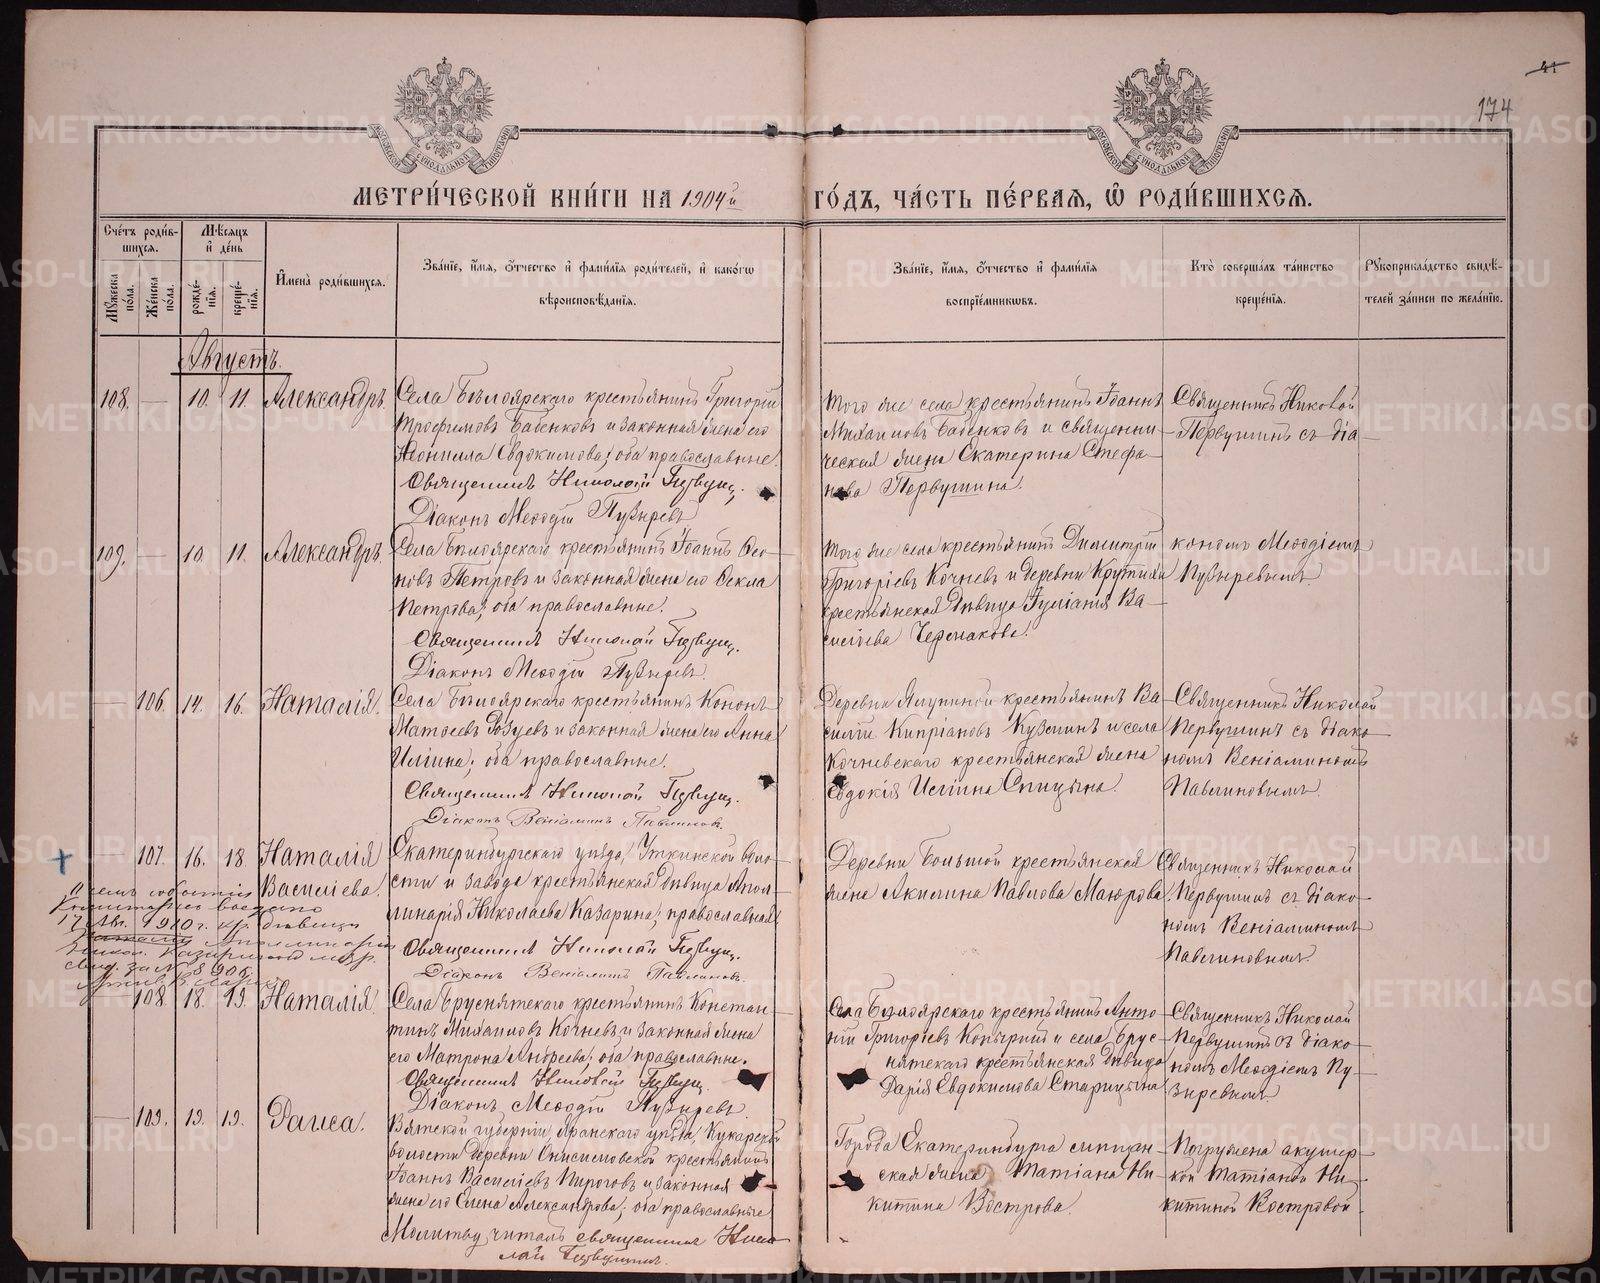 41
174
МЕТРИ́ЧЕСКОЙ КНИ́ГИ НА 1904й ГО́ДЪ, ЧА́СТЬ ПЕ́РВАЯ, Ѡ РОДИ́ВШИХСЯ.
Сче́тъ роди́вшихся.
Мѣ́сяцъ и де́нь
Му́жеска по́ла.
Же́нска по́ла.
рожде́нїя.
креще́нїя.
Имена̀ роди́вшихся.
Зва́нїе, и́мя, о́тчество и фами́лїя роди́телей, и како́гѡ
вѣроисповѣ́данїя.
Зва́нїе, и́мя, о́тчество и фами́лїя
воспрїе́мниковъ.
Кто̀ соверша́лъ та́инство
креще́нїя.
Рукоприкла́дство свидѣ́-
телей за́писи по жела́нїю.
Августъ.
108. — 10. 11. Александръ.
Села Бѣлоярскаго крестьянинъ Григорій
Трофимовъ Бабенковъ и законная жена его
Леонилла Евдокимова; оба православные.
Священникъ Николай Первуш.
Діаконъ Меѳодій Пузыревъ
Того же села крестьянинъ Іоаннъ
Михаиловъ Бабенковъ и священни-
ческая жена Екатерина Стефа-
нова Первушина.
Священникъ Николай
Первушинъ съ діа-
109. — 10. 11. Александръ.
Села Бѣлоярскаго крестьянинъ Іоаннъ
Петровъ и законная жена его Ѳекла
Петрова; оба православные.
Священникъ Николай Первуш.
Діаконъ Меѳодій Пузыревъ.
Того же села крестьянинъ Димитрій
Григоріевъ Кочневъ и деревни
крестьянская дѣвица Іуліанія Ва-
сильева Чермакова.
кономъ Меѳодіемъ
Пузыревымъ.
— 106. 14. 16. Наталія.
Села Бѣлоярскаго крестьянинъ Кононъ
Матѳеевъ и законная жена его Анна
Иліина; оба православные.
Священникъ Николай Первуш.
Діаконъ Веніаминъ Павлиновъ.
Деревни крестьянинъ Ва-
силій Кипріановъ Кузминъ и села
Кочневскаго крестьянская жена
Евдокія Иліина Спицына.
Священникъ Николай
Первушинъ съ діако-
номъ Веніаминомъ
Павлиновымъ.
— 107. 16. 18. Наталія
Василіева.
Екатеринбургскаго уѣзда, Уткинской воло-
сти и завода крестьянская дѣвица Апол-
линарія Николаева Казарина; православная.
Священникъ Николай Первуш.
Діаконъ Веніаминъ Павлиновъ.
Деревни Большой крестьянская
жена Акилина Павлова Маюрова.
Священникъ Николай
Первушинъ съ діако-
номъ Веніаминомъ
Павлиновымъ.
17 Авг. 1910 г. кр. дѣвицѣ
— 108. 18. 19. Наталія.
Села Бруснятскаго крестьянинъ Констан-
тинъ Михаиловъ Кочневъ и законная жена
его Матрона Андреева; оба православные.
Священникъ Николай Первуш.
Діаконъ Меѳодій Пузыревъ.
Села Бѣлоярскаго крестьянинъ Анто-
ній Григоріевъ и села Брус-
нятскаго крестьянская дѣвица
Дарія Евдокимова Старицына.
Священникъ Николай
Первушинъ съ діако-
номъ Меѳодіемъ Пу-
зыревымъ.
— 109. 19. 19. Раиса.
Вятской губерніи, Яранскаго уѣзда, Кукарской
волости деревни Онисимовской крестьянинъ
Іоаннъ Василіевъ Пироговъ и законная
жена его Елена Александрова; оба православные
Молитву читалъ священникъ Нико-
лай Первушинъ.
Города Екатеринбурга мѣщан-
ская жена Татіана Ни-
китина Вострова.
Погружена акушер-
кой Татіаной Ни-
китиной Востровой.
METRIKI.GASO-URAL.RU